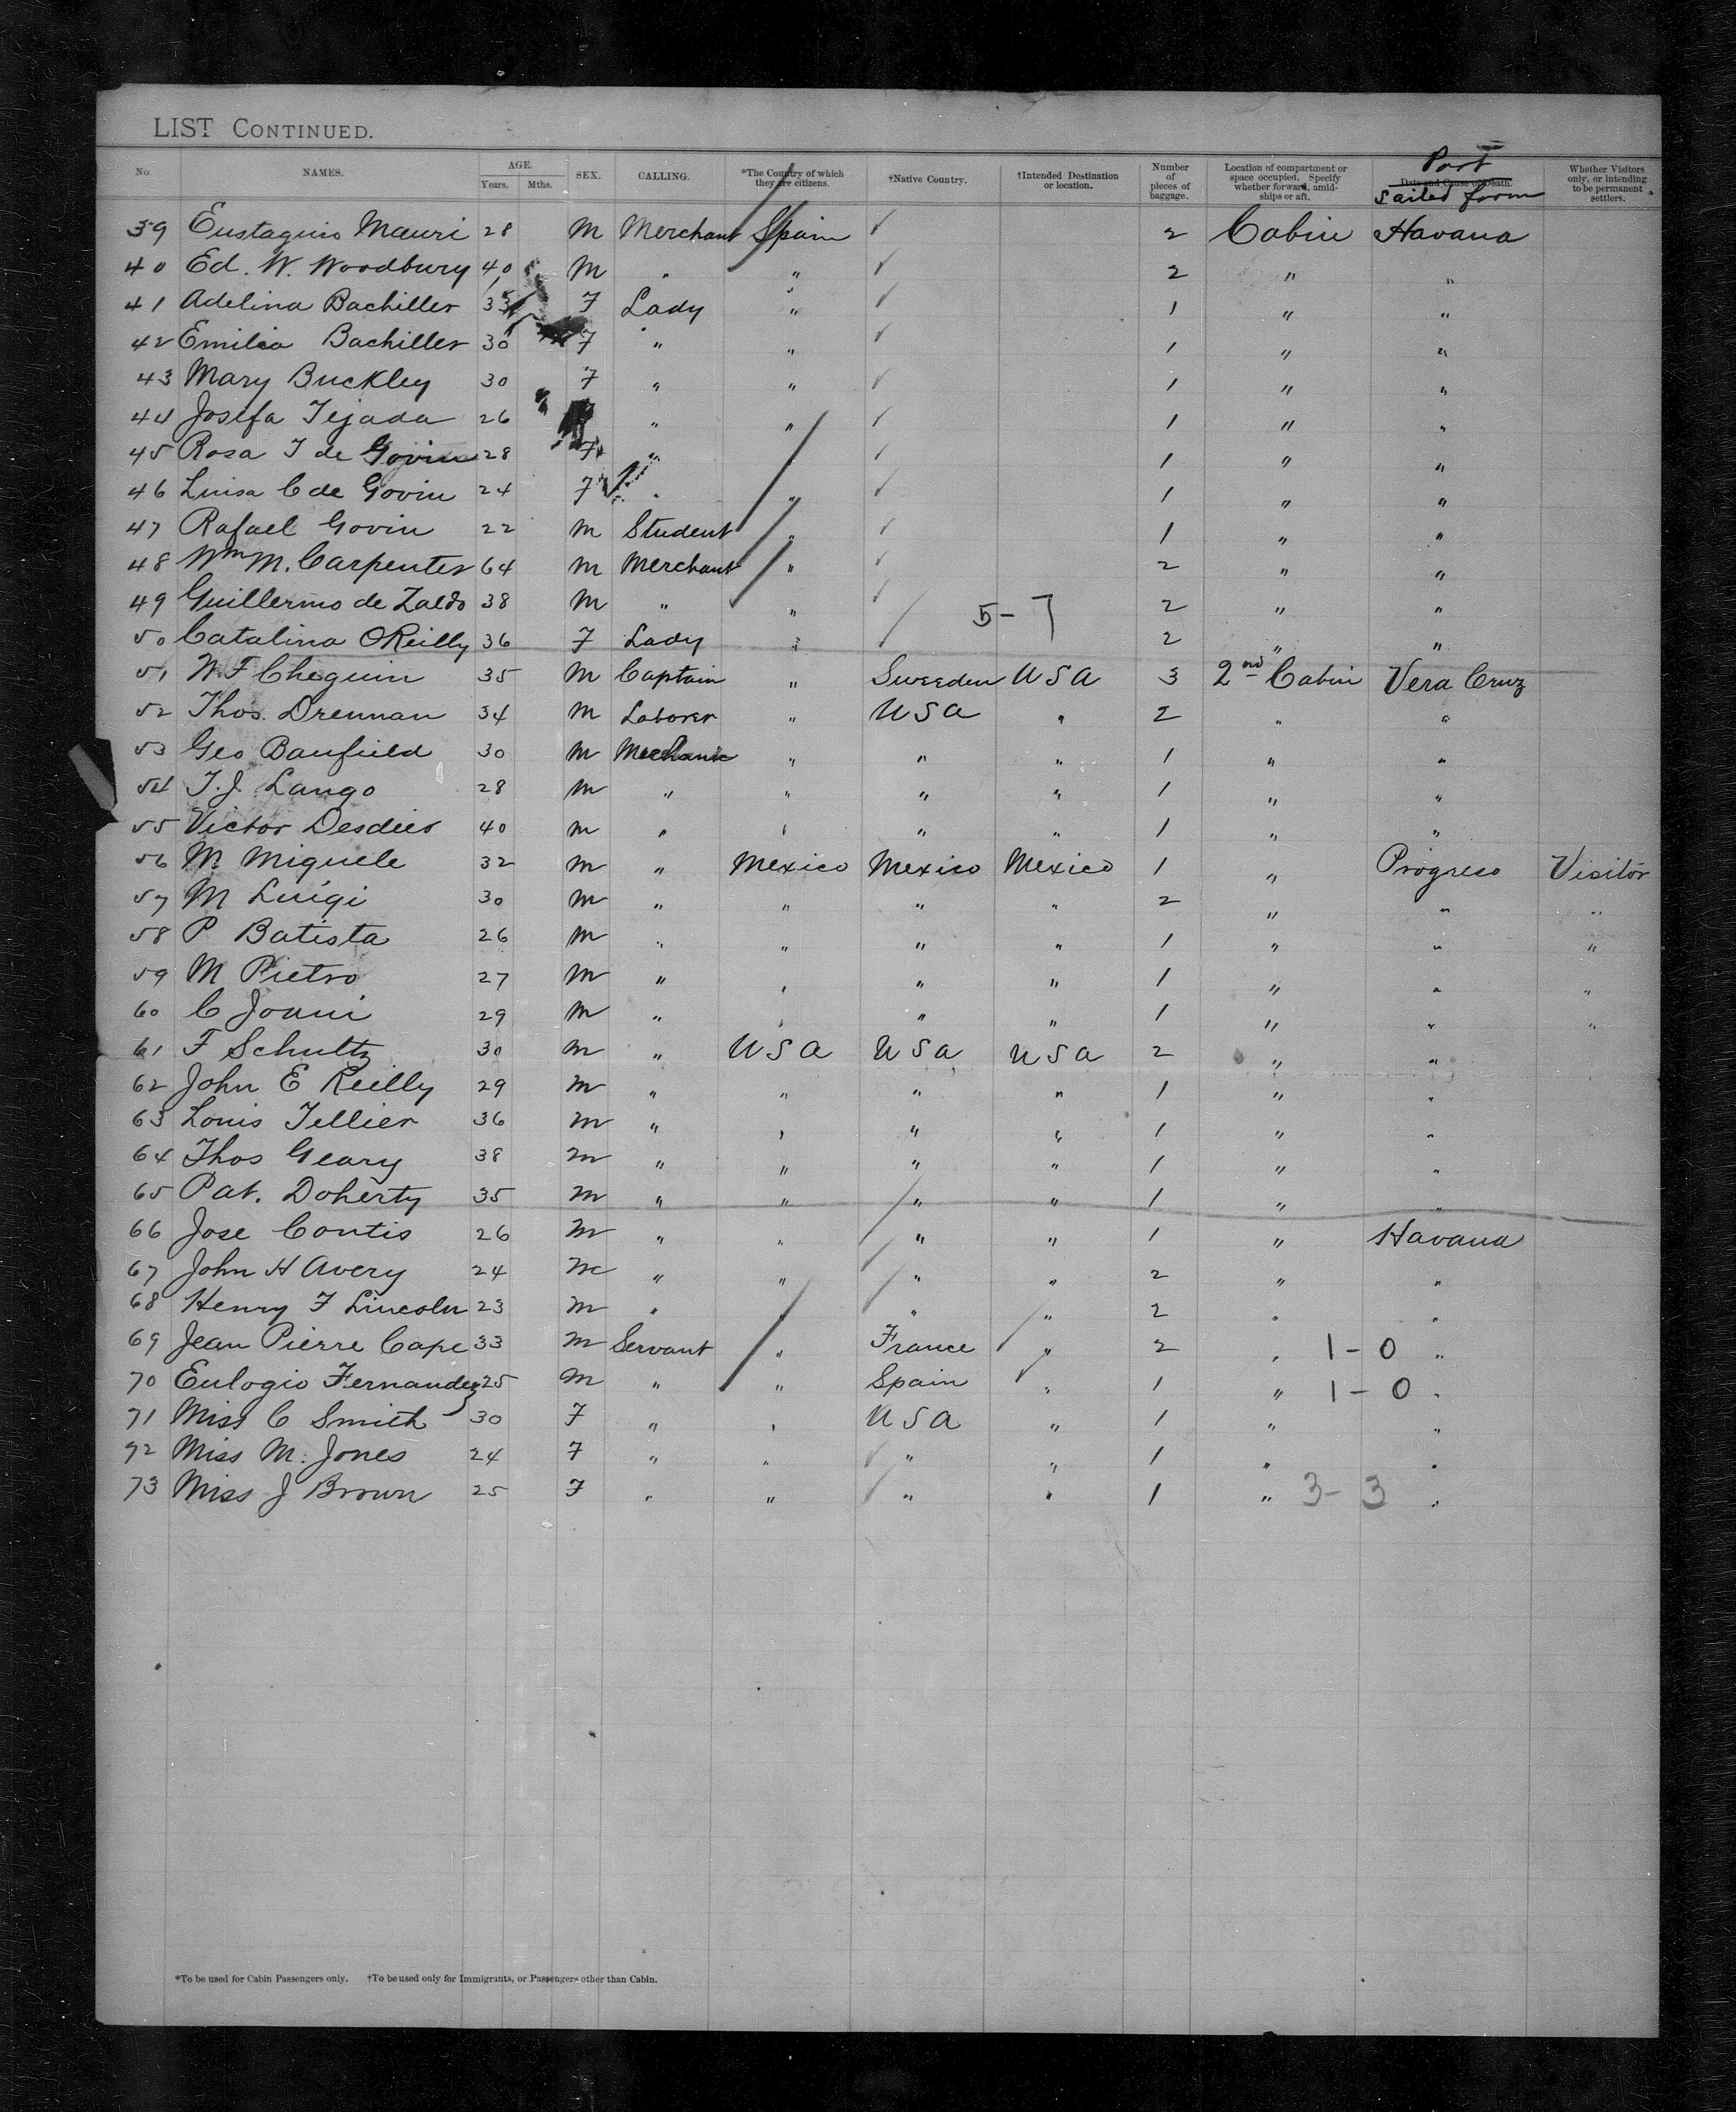 LIST CONTINUED.
No. NAMES. AGE. Years. Mths. SEX. CALLING. *The Country of which they are citizens. †Native Country. †Intended Destination or location. Number of pieces of baggage. Location of compartment or space occupied. Specify whether forward, amidships or aft. Date and Cause of Death. Port Sailed from Whether Visitors only, or intending to be permanent settlers.
39 Eustaquio Mauri 28 M Merchant Spain ✓ 2 Cabin Havana
40 Ed. W. Woodbury 40 M " " ✓ 2 " "
41 Adelina Bachiller 33 F Lady " ✓ 1 " "
42 Emilia Bachiller 30 F " " ✓ 1 " "
43 Mary Buckley 30 F " " ✓ 1 " "
44 Josefa Tejada 26 " " ✓ 1 " "
45 Rosa T de Govin 28 F " " ✓ 1 " "
46 Luisa C de Govin 24 F " " ✓ 1 " "
47 Rafael Govin 22 M Student " ✓ 1 " "
48 Wm M. Carpenter 64 M Merchant " ✓ 2 " "
49 Guillermo de Zaldo 38 M " " ✓ 5-7 2 " "
50 Catalina OReilly 36 F Lady " 2 " "
51 W F Chequin 35 M Captain " Sweeden USA 3 2nd Cabin Vera Cruz
52 Thos. Drennan 34 M Laborer " USA " 2 " "
53 Geo Banfield 30 M Mechanic " " " 1 " "
54 T. J. Lango 28 M " " " " 1 " "
55 Victor Desdier 40 M " " " " 1 " "
56 M. Miguele 32 M " Mexico Mexico Mexico 1 " Progreso Visitor
57 M Luigi 30 M " " " " 2 " " "
58 P Batista 26 M " " " " 1 " " "
59 M Pietro 27 M " " " " 1 " " "
60 C Joani 29 M " " " " 1 " " "
61 F Schultz 30 M " USA USA USA 2 " "
62 John E Reilly 29 M " " " " 1 " "
63 Louis Tellier 36 M " " " " 1 " "
64 Thos Geary 38 M " " " " 1 " "
65 Pat. Doherty 35 M " " " " 1 " "
66 Jose Contis 26 M " " " " 1 " Havana
67 John H Avery 24 M " " " " 2 " "
68 Henry F Lincoln 23 M " " " " 2 " "
69 Jean Pierre Cape 33 M Servant " France " 2 " 1-0 "
70 Eulogio Fernandez 25 M " " Spain " 1 " 1-0 "
71 Miss C Smith 30 F " " USA " 1 " "
72 Miss M. Jones 24 F " " " " 1 " "
73 Miss J Brown 25 F " " " " 1 " 3-3 "
*To be used for Cabin Passengers only. †To be used only for Immigrants, or Passengers other than Cabin.